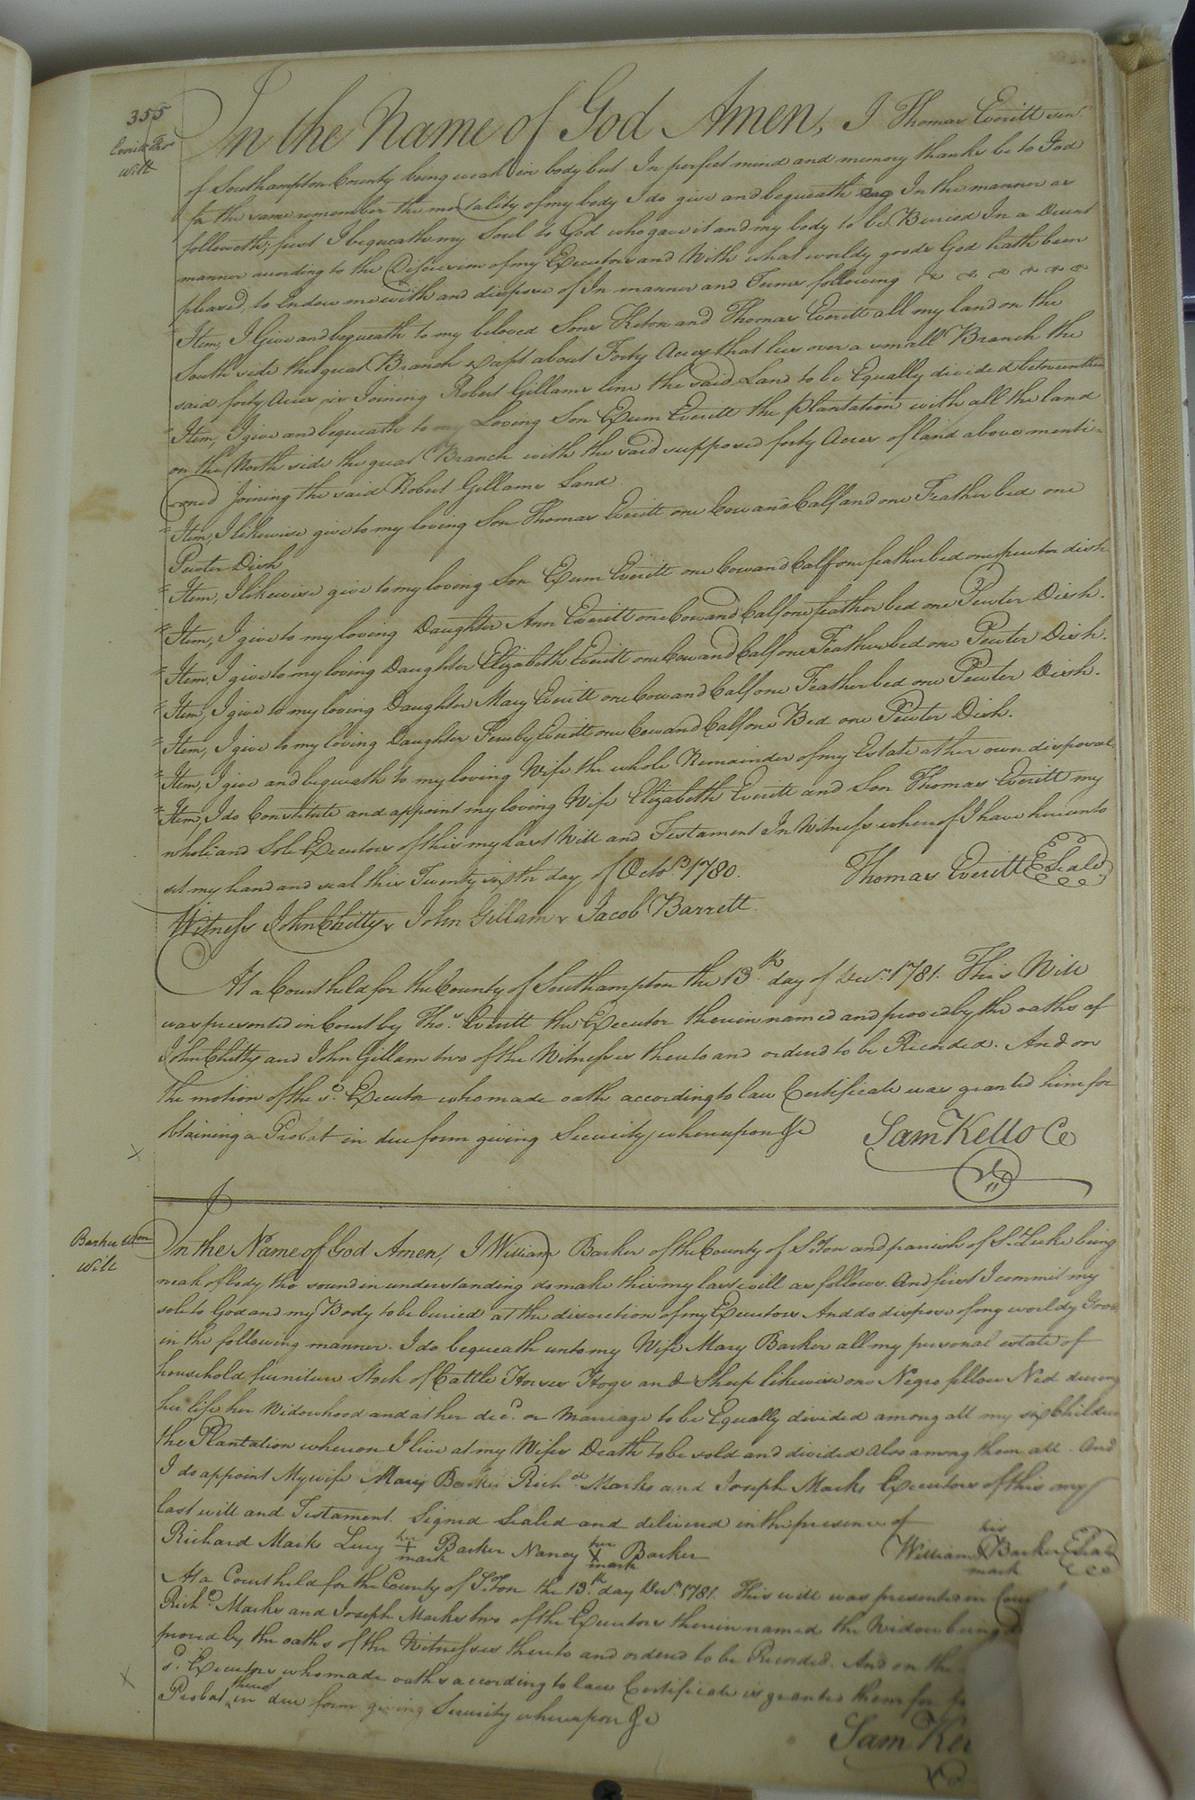 355
Everitt Thos
Will
In the Name of God Amen, I Thomas Everitt senr
of Southampton County being weak in body but In perfect mind and memory thanks be to God
for the same remember the mortality of my body I do give and bequeath In the manner as
followeth; first I bequeath my Soul to God who gave it and my body to be Buried In a Decent
manner according to the Discression of my Executors and With what worldy goods God hath been
pleased, to Endow me with and dispose of In manner and Forme following
Item, I Give and bequeath to my beloved Sons and Thomas Everitt all my land on the
South side the great Branch Except about Forty Acres that lies over a small Branch the
said forty Acres is Joining Robert Gillams line the said Land to be Equally divided between them
Item, I give and bequeath to my Loving Son Exum Everitt the plantation with all the land
on the North side the great Branch with the said supposed forty Acres of land above menti-
oned Joining the said Robert Gillams Land
Item, I likewise give to my loving Son Thomas Everitt one Cow and Calf and one Feather bed one
Pewter Dish
Item, I likewise give to my loving Son Exum Everitt one Cow and Calf one feather bed one pewter dish
Item, I give to my loving Daughter Ann Everitt one Cow and Calf one feather bed one Pewter Dish.
Item, I give to my loving Daughter Elizabeth Everitt one Cow and Calf one Feather bed one Pewter Dish.
Item, I give to my loving Daughter Mary Everitt one Cow and Calf one Feather bed one Pewter Dish.
Item, I give to my loving Daughter Everitt one Cow and Calf one Bed one Pewter Dish.
Item, I give and bequeath to my loving Wife the whole Remainder of my Estate at her own disposal,
Item, I do Constitute and appoint my loving Wife Elizabeth Everitt and Son Thomas Everitt my
whole and Sole Executors of this my last Will and Testament In Witness whereof I have hereunto
set my hand and seal this Twenty sixth day of Octor. 1780. Thomas Everitt Seald
Witness John Chitty, John Gillam, Jacob Barrett
At a Court held for the County of Southampton the 13th day of Decr. 1781. This Will
was presented in Court by Thos. Everitt the Executor therein named and proved by the oaths of
John Chitty and John Gillam two of the Witnesses thereto and ordered to be Recorded. And on
the motion of the sd. Executor who made oath according to law Certificate was granted him for
obtaining a Probat in due form giving Security whereupon &c Sam Kello Ce
Barker Wm
Will
In the Name of God Amen, I William Barker of the County of S:ton and parrish of St. Luke being
weak of body tho' sound in understanding do make this my last will as follows. And first I commit my
sole to God and my Body to be buried at the discretion of my Executors And do dispose of my worldy Goods
in the following manner. I do bequeath unto my Wife Mary Barker all my personal estate of
household furniture Stock of Cattle Horses Hogs and Sheep likewise one Negro fellow Ned during
her life her Widowhood and at her decd. or Marriage to be Equally divided among all my six Children
the Plantation whereon I live at my Wifes Death to be sold and divided also among them all. And
I do appoint My wife Mary Barker Richd Marks and Joseph Marks Executors of this my
last will and Testament. Signed Sealed and delivered in the presence of
Richard Marks Lucy her X mark Barker Nancy her X mark Barker William his X mark Barker Seal
At a Court held for the County of S:ton the 13th. day Decr. 1781. This will was presented in Court
Richd. Marks and Joseph Marks two of the Executors therein named the Widow being
proved by the oaths of the Witnesses thereto and ordered to be Recorded. And on the
sd. Executors who made oath according to law Certificate is granted them for
Probat thereof in due form giving Security whereupon &c
Sam Kel